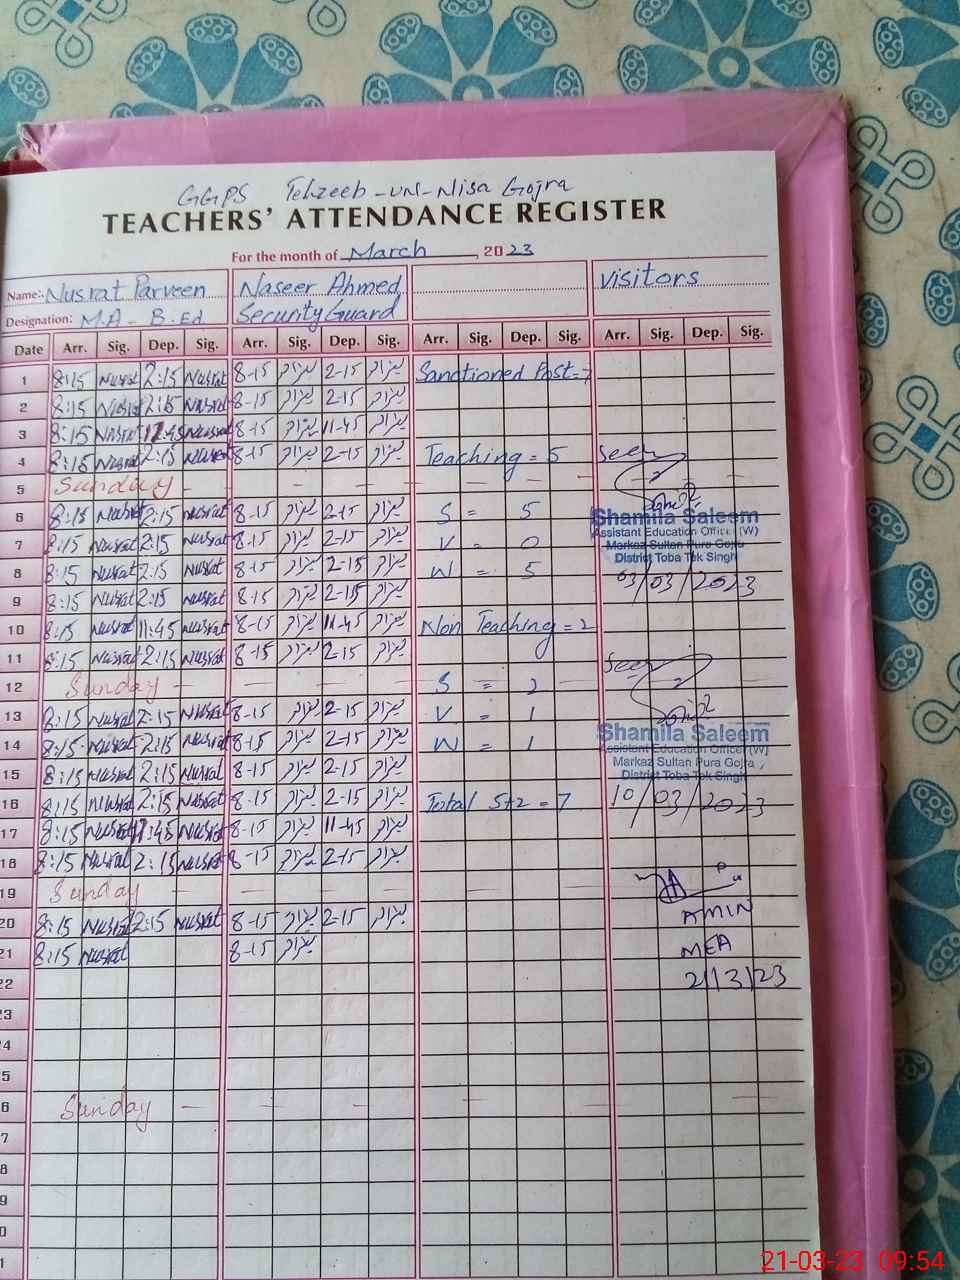 GGPS Tehzeeb-UN-Nisa Gojra
TEACHERS' ATTENDANCE REGISTER
For the month of March, 2023
Name:- Nusrat Parveen Naseer Ahmed visitors
Designation: M.A - B.Ed Security Guard
Date Arr. Sig. Dep. Sig. Arr. Sig. Dep. Sig. Arr. Sig. Dep. Sig. Arr. Sig. Dep. Sig.
1 8:15 Nusrat 2:15 Nusrat 8-15 2-15 Sanctioned Post=7
2 8:15 Nusrat 2:15 Nusrat 8-15 2-15
3 8:15 Nusrat 11:45 Nusrat 8-15 11-45
4 8:15 Nusrat 2:15 Nusrat 8-15 2-15 Teaching = 5 Seen
5 Sunday - - - - - - - -
6 8:15 Nusrat 2:15 Nusrat 8-15 2-15 S = 5
Shamila Saleem
Assistant Education Officer (W)
7 8:15 Nusrat 2:15 Nusrat 8-15 2-15 V = 0
Markaz Sultan Pura Gojra
District Toba Tek Singh
8 8:15 Nusrat 2:15 Nusrat 8-15 2-15 W = 5 03/03/2023
9 8:15 Nusrat 2:15 Nusrat 8-15 2-15
10 8:15 Nusrat 11:45 Nusrat 8-15 11-45 Non Teaching = 2
11 8:15 Nusrat 2:15 Nusrat 8-15 2-15 Seen
12 Sunday - - - - - S = 2
13 8:15 Nusrat 2:15 Nusrat 8-15 2-15 V = 1
Shamila Saleem
14 8:15 Nusrat 2:15 Nusrat 8-15 2-15 W = 1
Assistent Education Officer (W)
Markaz Sultan Pura Gojra,
District Toba Tek Singh
15 8:15 Nusrat 2:15 Nusrat 8-15 2-15
16 8:15 Nusrat 2:15 Nusrat 8-15 2-15 Total 5+2 = 7 10/03/2023
17 8:15 Nusrat 11:45 Nusrat 8-15 11-45
18 8:15 Nusrat 2:15 Nusrat 8-15 2-15
19 Sunday - - - - - -
20 8:15 Nusrat 2:15 Nusrat 8-15 2-15 AMIN
21 8:15 Nusrat 8-15 MEA
22 21/3/23
23
4
5
6 Sunday - - - - -
7
8
9
0
1
21-03-23 09:54